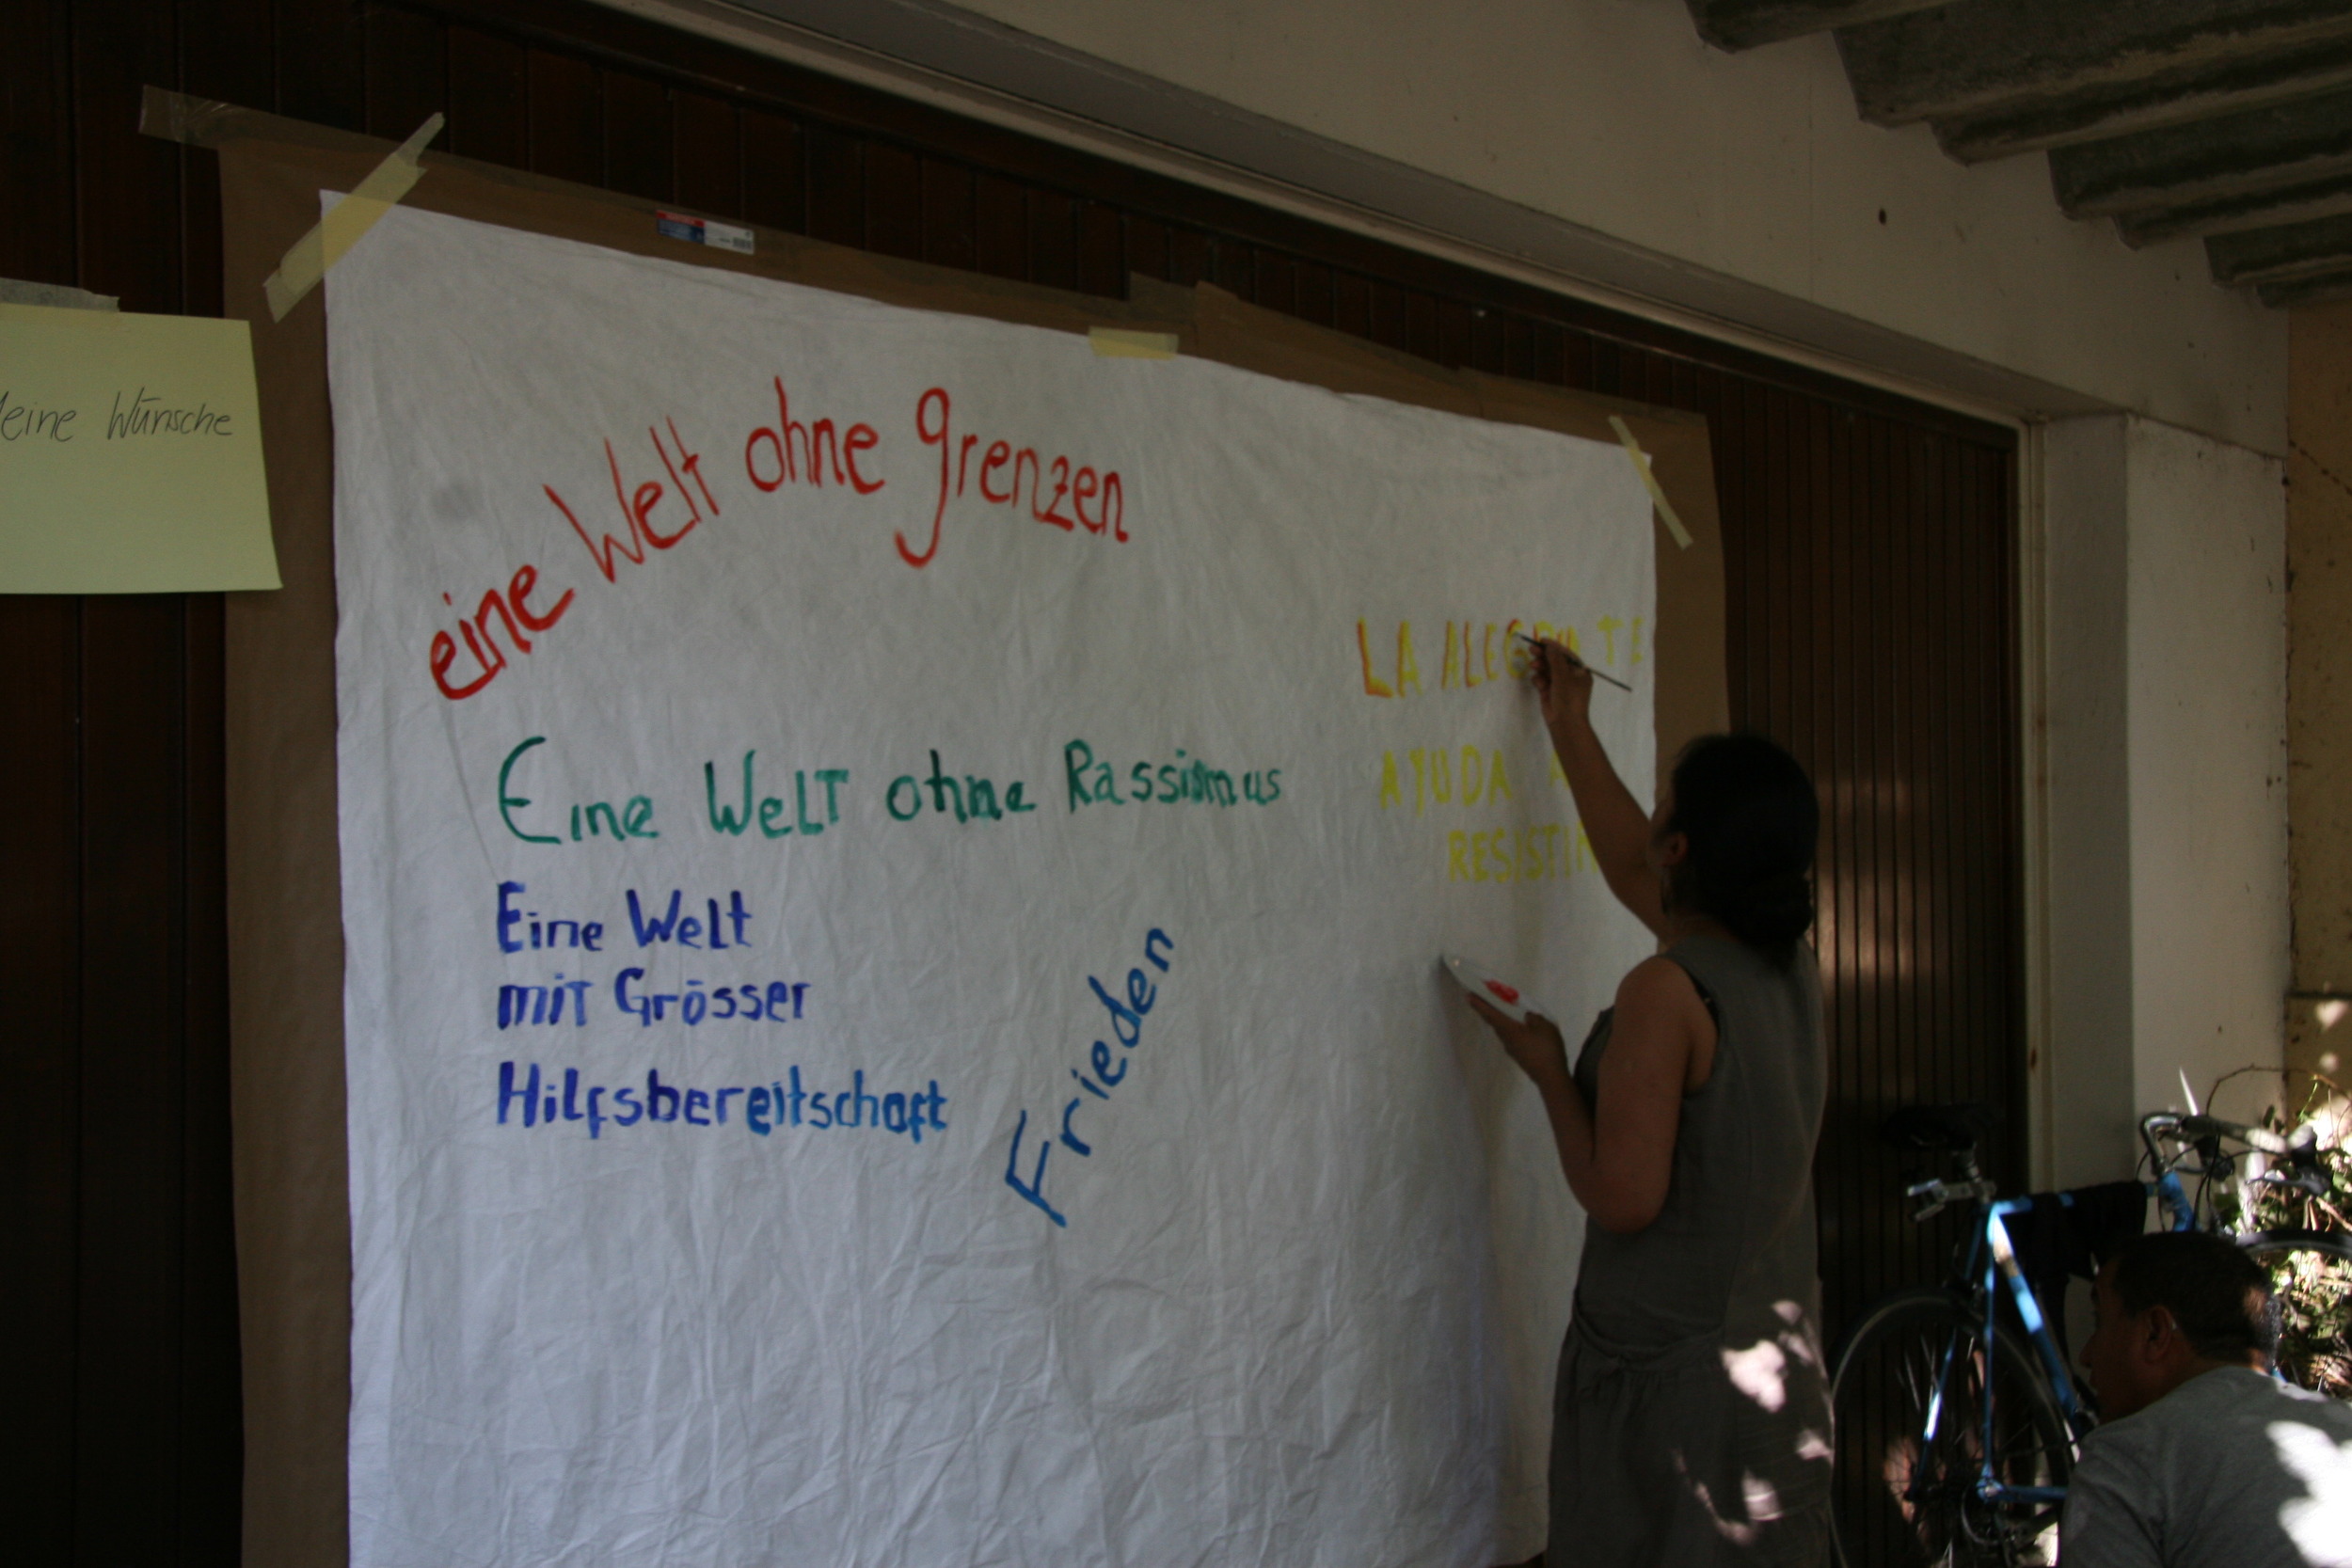 eine Wünsche
eine Welt ohne grenzen
Eine WelT ohne Rassismus
Eine Welt
miT Grösser
Hilfsbereitschaft
Frieden
LA ALEGRIA TE
AYUDA A
RESISTIR